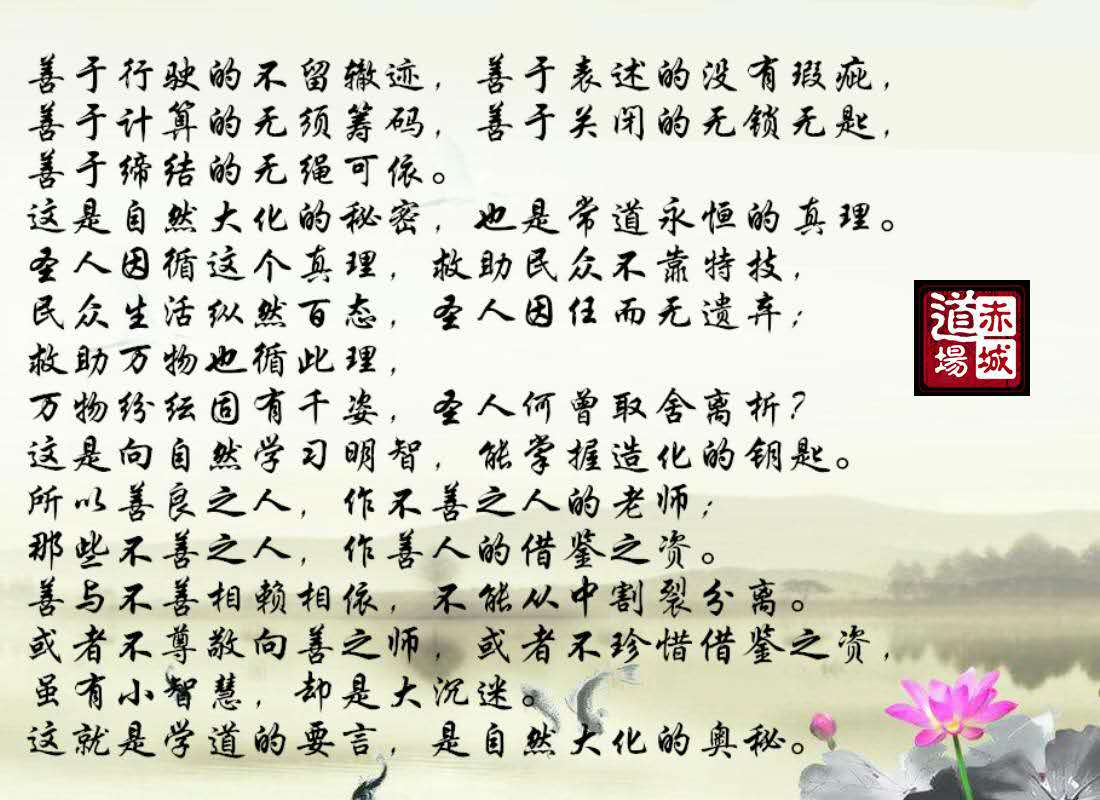 善于行驶的不留辙迹，善于表述的没有瑕疵，
善于计算的无须筹码，善于关闭的无锁无匙，
善于缔结的无绳可依。
这是自然大化的秘密，也是常道永恒的真理。
圣人因循这个真理，救助民众不靠特技，
民众生活纵然百态，圣人因任而无遗弃；
救助万物也循此理，
万物纷纭固有千姿，圣人何曾取舍离析？
这是向自然学习明智，能掌握造化的钥匙。
所以善良之人，作不善之人的老师；
那些不善之人，作善人的借鉴之资。
善与不善相赖相依，不能从中割裂分离。
或者不尊敬向善之师，或者不珍惜借鉴之资，
虽有小智慧，却是大沉迷。
这就是学道的要言，是自然大化的奥秘。
赤城
道場